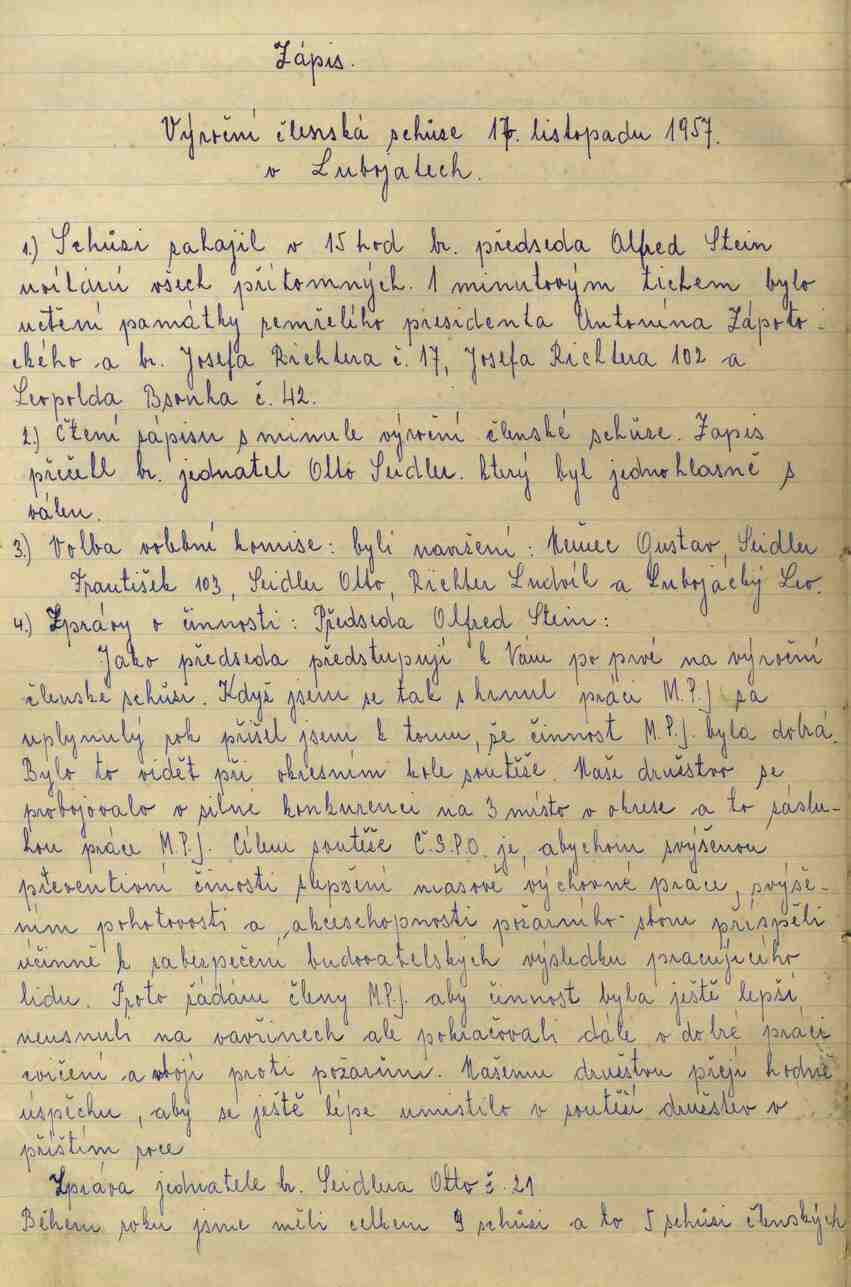 Zápis.
Výroční členská schůze 17. listopadu 1957.
v Lubojatech.
1.) Schůzi zahajil v 15 hod br. předseda Alfred Stein
uvítání všech přítomných. 1 minutovým tichem bylo
uctění památky zemřelého presidenta Antonína Zápoto-
ckého a br. Josefa Richtera č. 17, Josefa Richtera 102 a
Leopolda Bsonka č. 42.
2.) Čtení zápisu z minule výroční členské schůze. Zapis
přečetl br. jednatel Otto Seidler. který byl jednohlasně s
válen.
3.) Volba volební komise: byli navrženi: Němec Gustav, Seidler
František 103, Seidler Otto, Richter Ludvík a Lubojacký Leo.
4.) Zprávy o činnosti: Předseda Alfred Stein:
Jako předseda předstupuji k Vám po prvé na výroční
členské schůzi. Když jsem se tak shrnul práci M.P.J za
uplynulý rok přišel jsem k tomu, že činnost M.P.J. byla dobrá.
Bylo to vidět při okresním kole soutěže. Naše družstvo se
probojovalo v silné konkurenci na 3 místo v okrese a to záslu-
hou práce M.P.J. Cílem soutěže Č.S.P.O. je, abychom zvýšenou
preventivní činosti zlepšení masově výchovné práce, zvýše-
ním pohotovosti a akceschopnosti požárního sboru přispěli
účinně k zabezpečení budovatelských výsledku pracujícího
lidu. Proto žádám členy M.P.J. aby činnost byla ještě lepší
neusnuli na vavřinech ale pokračovali dále v dobré práci
cvičení a boji proti požárům. Našemu družstvu přeji hodně
úspěchu, aby se ještě lépe umistilo v soutěži družstev v
příštím roce
Zpráva jednatele br. Seidlera Otto č. 21
Během roku jsme měli celkem 9 schůsi a to 5 schůsi členských